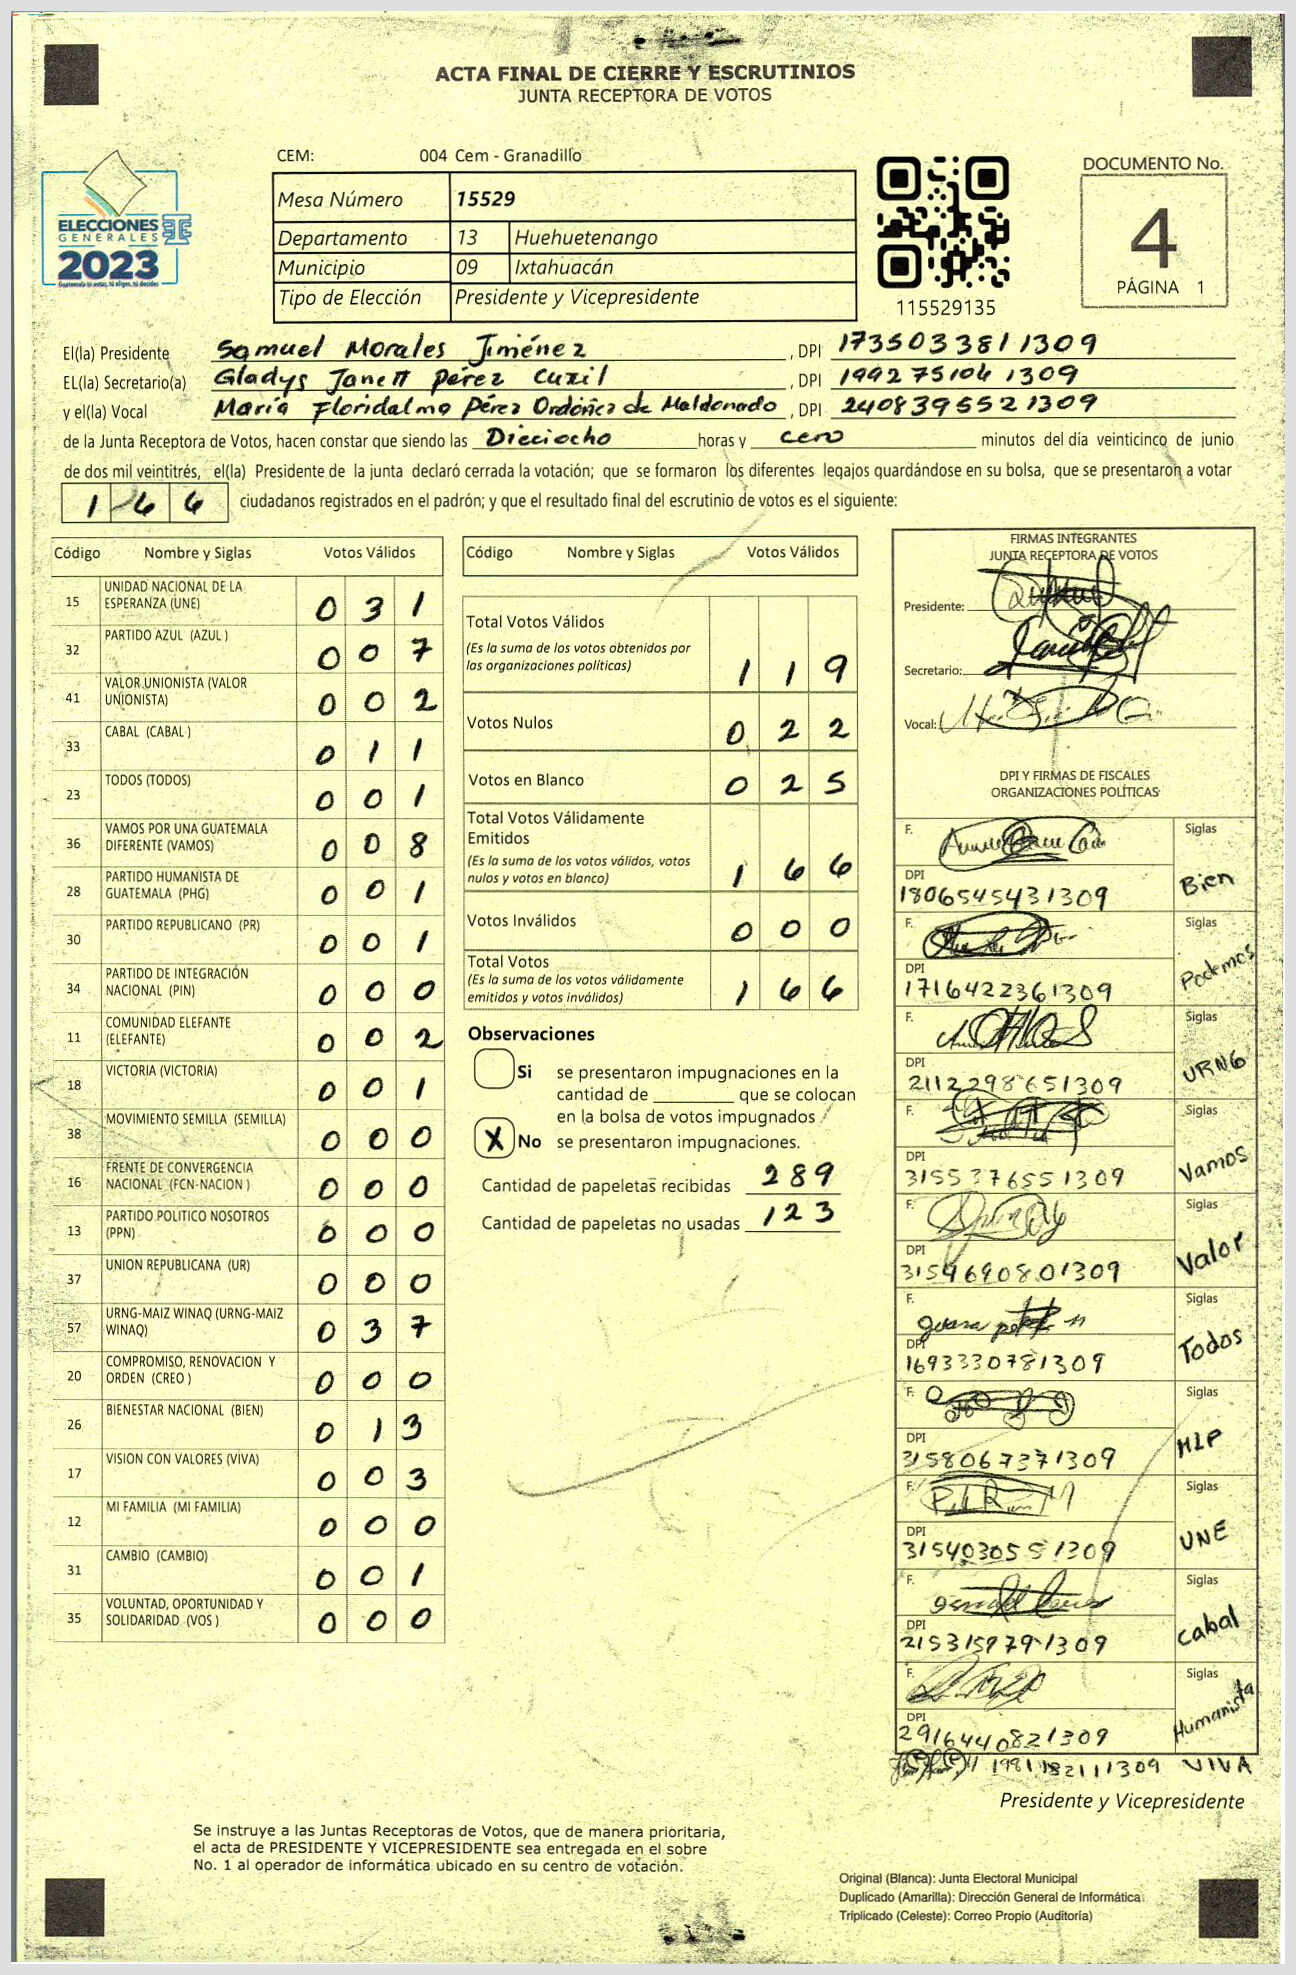 ACTA FINAL DE CIERRE Y ESCRUTINIOS
JUNTA RECEPTORA DE VOTOS
CEM: 004 Cem - Granadillo
ELECCIONES
GENERALES
2023
Guatemala tú votas, tú eliges, tú decides
Mesa Número 15529
Departamento 13 Huehuetenango
Municipio 09 Ixtahuacán
Tipo de Elección Presidente y Vicepresidente
115529135
DOCUMENTO No.
4
PÁGINA 1
El(la) Presidente Samuel Morales Jiménez, DPI 1735033811309
EL(la) Secretario(a) Gladys Janett Pérez Cuxil, DPI 1992751041309
y el(la) Vocal María Floridalma Pérez Ordóñez de Maldonado, DPI 2408395521309
de la Junta Receptora de Votos, hacen constar que siendo las Dieciocho horas y cero minutos del día veinticinco de junio
de dos mil veintitrés, el(la) Presidente de la junta declaró cerrada la votación; que se formaron los diferentes legajos quardándose en su bolsa, que se presentaron a votar
166 ciudadanos registrados en el padrón; y que el resultado final del escrutinio de votos es el siguiente:
Código Nombre y Siglas Votos Válidos
15 UNIDAD NACIONAL DE LA ESPERANZA (UNE) 0 3 1
32 PARTIDO AZUL (AZUL ) 0 0 7
41 VALOR UNIONISTA (VALOR UNIONISTA) 0 0 2
33 CABAL (CABAL ) 0 1 1
23 TODOS (TODOS) 0 0 1
36 VAMOS POR UNA GUATEMALA DIFERENTE (VAMOS) 0 0 8
28 PARTIDO HUMANISTA DE GUATEMALA (PHG) 0 0 1
30 PARTIDO REPUBLICANO (PR) 0 0 1
34 PARTIDO DE INTEGRACIÓN NACIONAL (PIN) 0 0 0
11 COMUNIDAD ELEFANTE (ELEFANTE) 0 0 2
18 VICTORIA (VICTORIA) 0 0 1
38 MOVIMIENTO SEMILLA (SEMILLA) 0 0 0
16 FRENTE DE CONVERGENCIA NACIONAL (FCN-NACION ) 0 0 0
13 PARTIDO POLITICO NOSOTROS (PPN) 0 0 0
37 UNION REPUBLICANA (UR) 0 0 0
57 URNG-MAIZ WINAQ (URNG-MAIZ WINAQ) 0 3 7
20 COMPROMISO, RENOVACION Y ORDEN (CREO ) 0 0 0
26 BIENESTAR NACIONAL (BIEN) 0 1 3
17 VISION CON VALORES (VIVA) 0 0 3
12 MI FAMILIA (MI FAMILIA) 0 0 0
31 CAMBIO (CAMBIO) 0 0 1
35 VOLUNTAD, OPORTUNIDAD Y SOLIDARIDAD (VOS ) 0 0 0
Código Nombre y Siglas Votos Válidos
Total Votos Válidos 1 1 9
(Es la suma de los votos obtenidos por
las organizaciones políticas)
Votos Nulos 0 2 2
Votos en Blanco 0 2 5
Total Votos Válidamente
Emitidos 1 6 6
(Es la suma de los votos válidos, votos
nulos y votos en blanco)
Votos Inválidos 0 0 0
Total Votos 1 6 6
(Es la suma de los votos válidamente
emitidos y votos inválidos)
Observaciones
Si se presentaron impugnaciones en la
cantidad de ________ que se colocan
en la bolsa de votos impugnados
X No se presentaron impugnaciones.
Cantidad de papeletas recibidas 289
Cantidad de papeletas no usadas 123
FIRMAS INTEGRANTES
JUNTA RECEPTORA DE VOTOS
Presidente:
Secretario:
Vocal:
DPI Y FIRMAS DE FISCALES
ORGANIZACIONES POLÍTICAS
F. Siglas
DPI
1806545431309 Bien
F. Siglas
DPI
1716422361309 Podemos
F. Siglas
DPI
2112298651309 URNG
F. Siglas
DPI
3155376551309 Vamos
F. Siglas
DPI
3154690801309 Valor
F. Siglas
DPI
1693330781309 Todos
F. Siglas
DPI
3158067371309 MLP
F. Siglas
DPI
3154030551309 UNE
F. Siglas
DPI
2153159791309 Cabal
F. Siglas
DPI
2916440821309 Humanista
1981182111309 VIVA
Presidente y Vicepresidente
Se instruye a las Juntas Receptoras de Votos, que de manera prioritaria,
el acta de PRESIDENTE Y VICEPRESIDENTE sea entregada en el sobre
No. 1 al operador de informática ubicado en su centro de votación.
Original (Blanca): Junta Electoral Municipal
Duplicado (Amarilla): Dirección General de Informática
Triplicado (Celeste): Correo Propio (Auditoría)